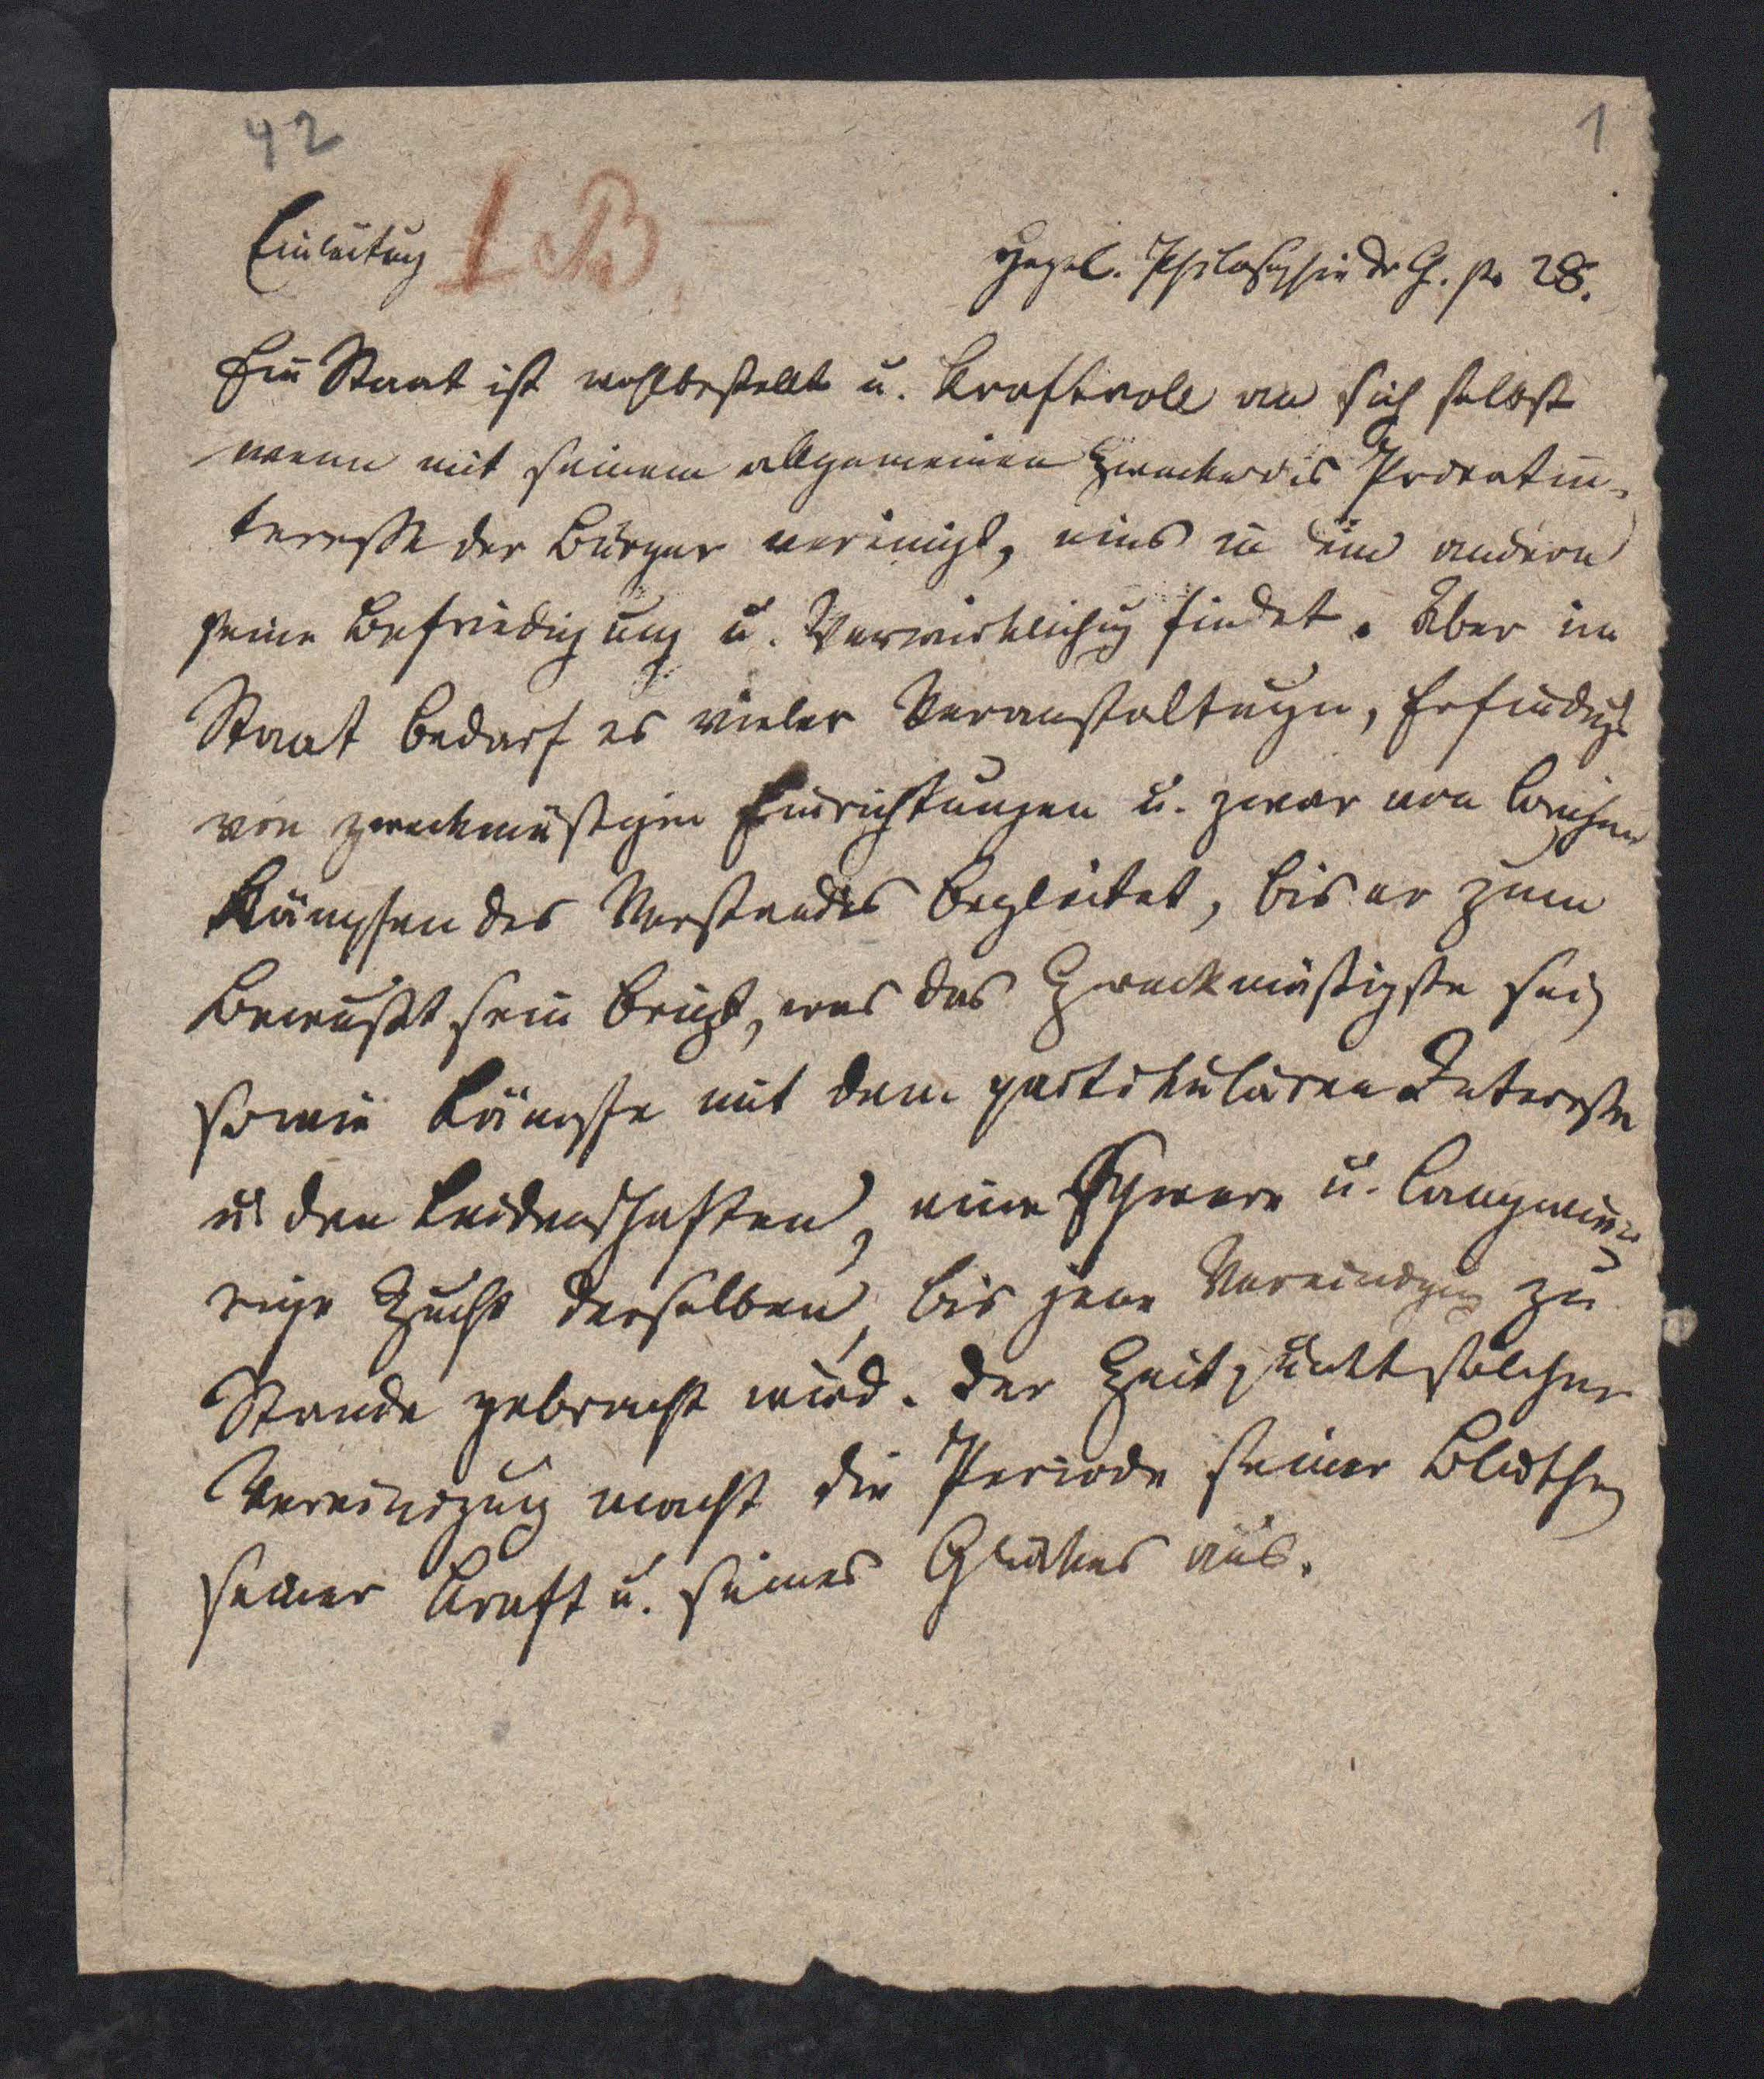 42
1
Einleitung I B. –
Hegel. Philosophie dr G. pr 28.
Ein Staat ist wohlbestellt u. kraftvoll an sich selbst
wenn mit seinem allgemeinen Zwecke das Privatin-
teresse der Bürger vereinigt, eins in dem andern
seine Befriedigung u. Verwirklichung findet. Aber im
Staat bedarf es vieler Veranstaltungen, Erfindungen
von zweckmäßigen Einrichtungen u. zwar von langen
Kämpfen des Verstandes begleitet, bis er zum
Bewußtsein bringt, was das Zweckmäßigste sei,
sowie Kämpfe mit dem partikulären Interesse
u. den Leidenschaften, eine schwere u. langwie-
rige Zucht derselben, bis jene Vereinigung zu
Stande gebracht wird. Der Zeitpunkt solcher
Vereinigung macht die Periode seiner Blüthe,
seiner Kraft u. seines Glückes aus.